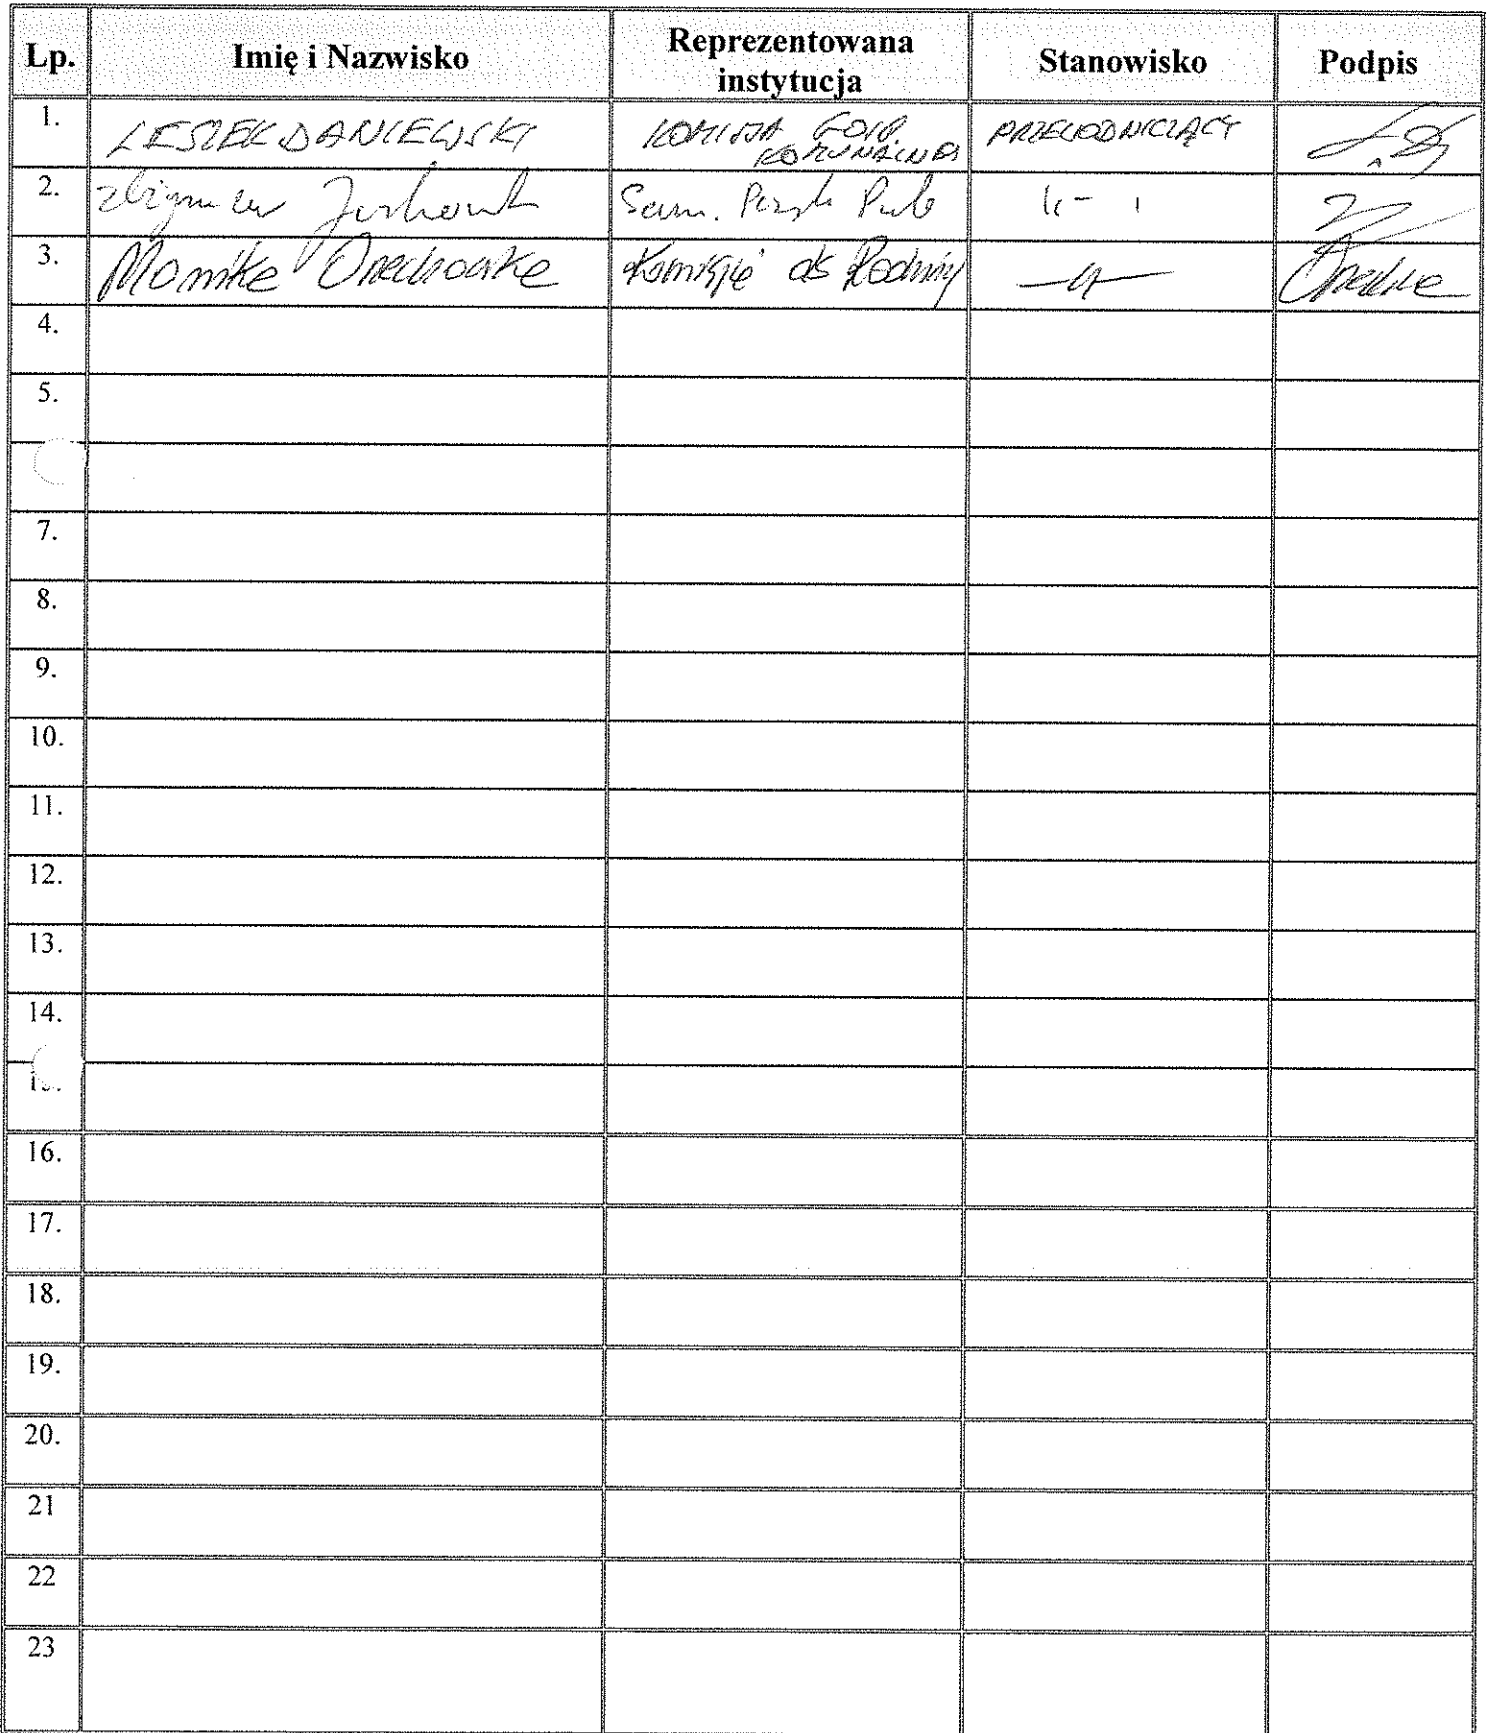 Lp. Imię i Nazwisko Reprezentowana instytucja Stanowisko Podpis
1. LESZEK DANIEWSKI KOMISJA GOSP. KOMUNALNEJ PRZEWODNICZĄCY
2. Zbigniew Sam. Porządk Pub
3. Monika Orzechowska Komisja ds Rodziny
4.
5.
7.
8.
9.
10.
11.
12.
13.
14.
15.
16.
17.
18.
19.
20.
21
22
23